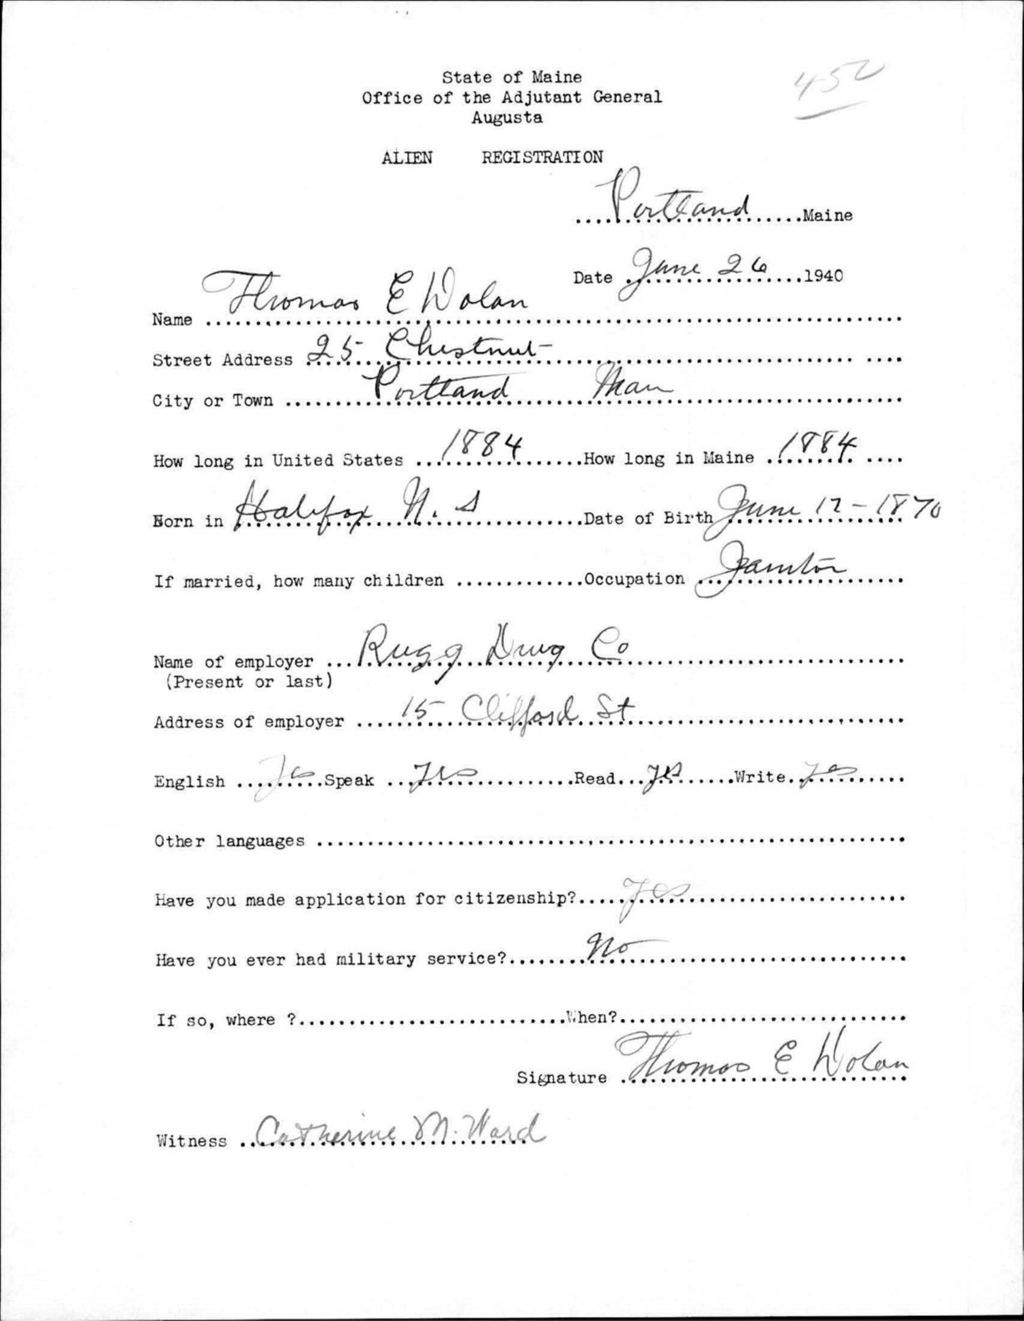 State of Maine
Office of the Adjutant General
Augusta
452
ALIEN REGISTRATION
Portland Maine
Date June 26 1940
Name Thomas E Dolan
Street Address 25 Chestnut
City or Town Portland
How long in United States 1884 How long in Maine 1884
Born in Halifax N. S Date of Birth June 12 - 1870
If married, how many children Occupation Janitor
Name of employer Rugg Drug Co
(Present or last)
Address of employer 15 Clifford St
English Yes Speak Yes Read Yes Write Yes
Other languages
Have you made application for citizenship? Yes
Have you ever had military service? No
If so, where ? When?
Signature Thomas E Dolan
Witness Catherine M. Ward